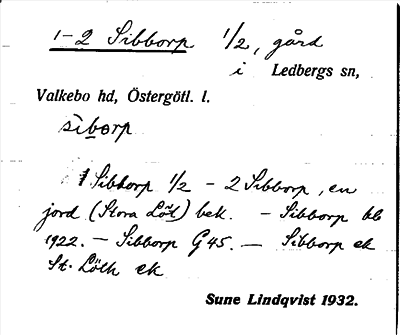 1-2 Sibborp 1/2, gård
i Ledbergs sn,
Valkebo hd, Östergötl. l.
sìborp
1 Sibborp 1/2 - 2 Sibborp, en
jord (Stora Löt) bek. - Sibborp bl
1922. - Sibborp G 45. - Sibborp ek
St. Löth ek
Sune Lindqvist 1932.